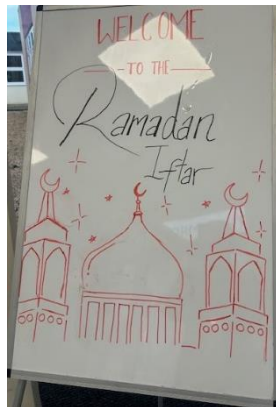 WELCOME
TO THE
Ramadan
Iftar